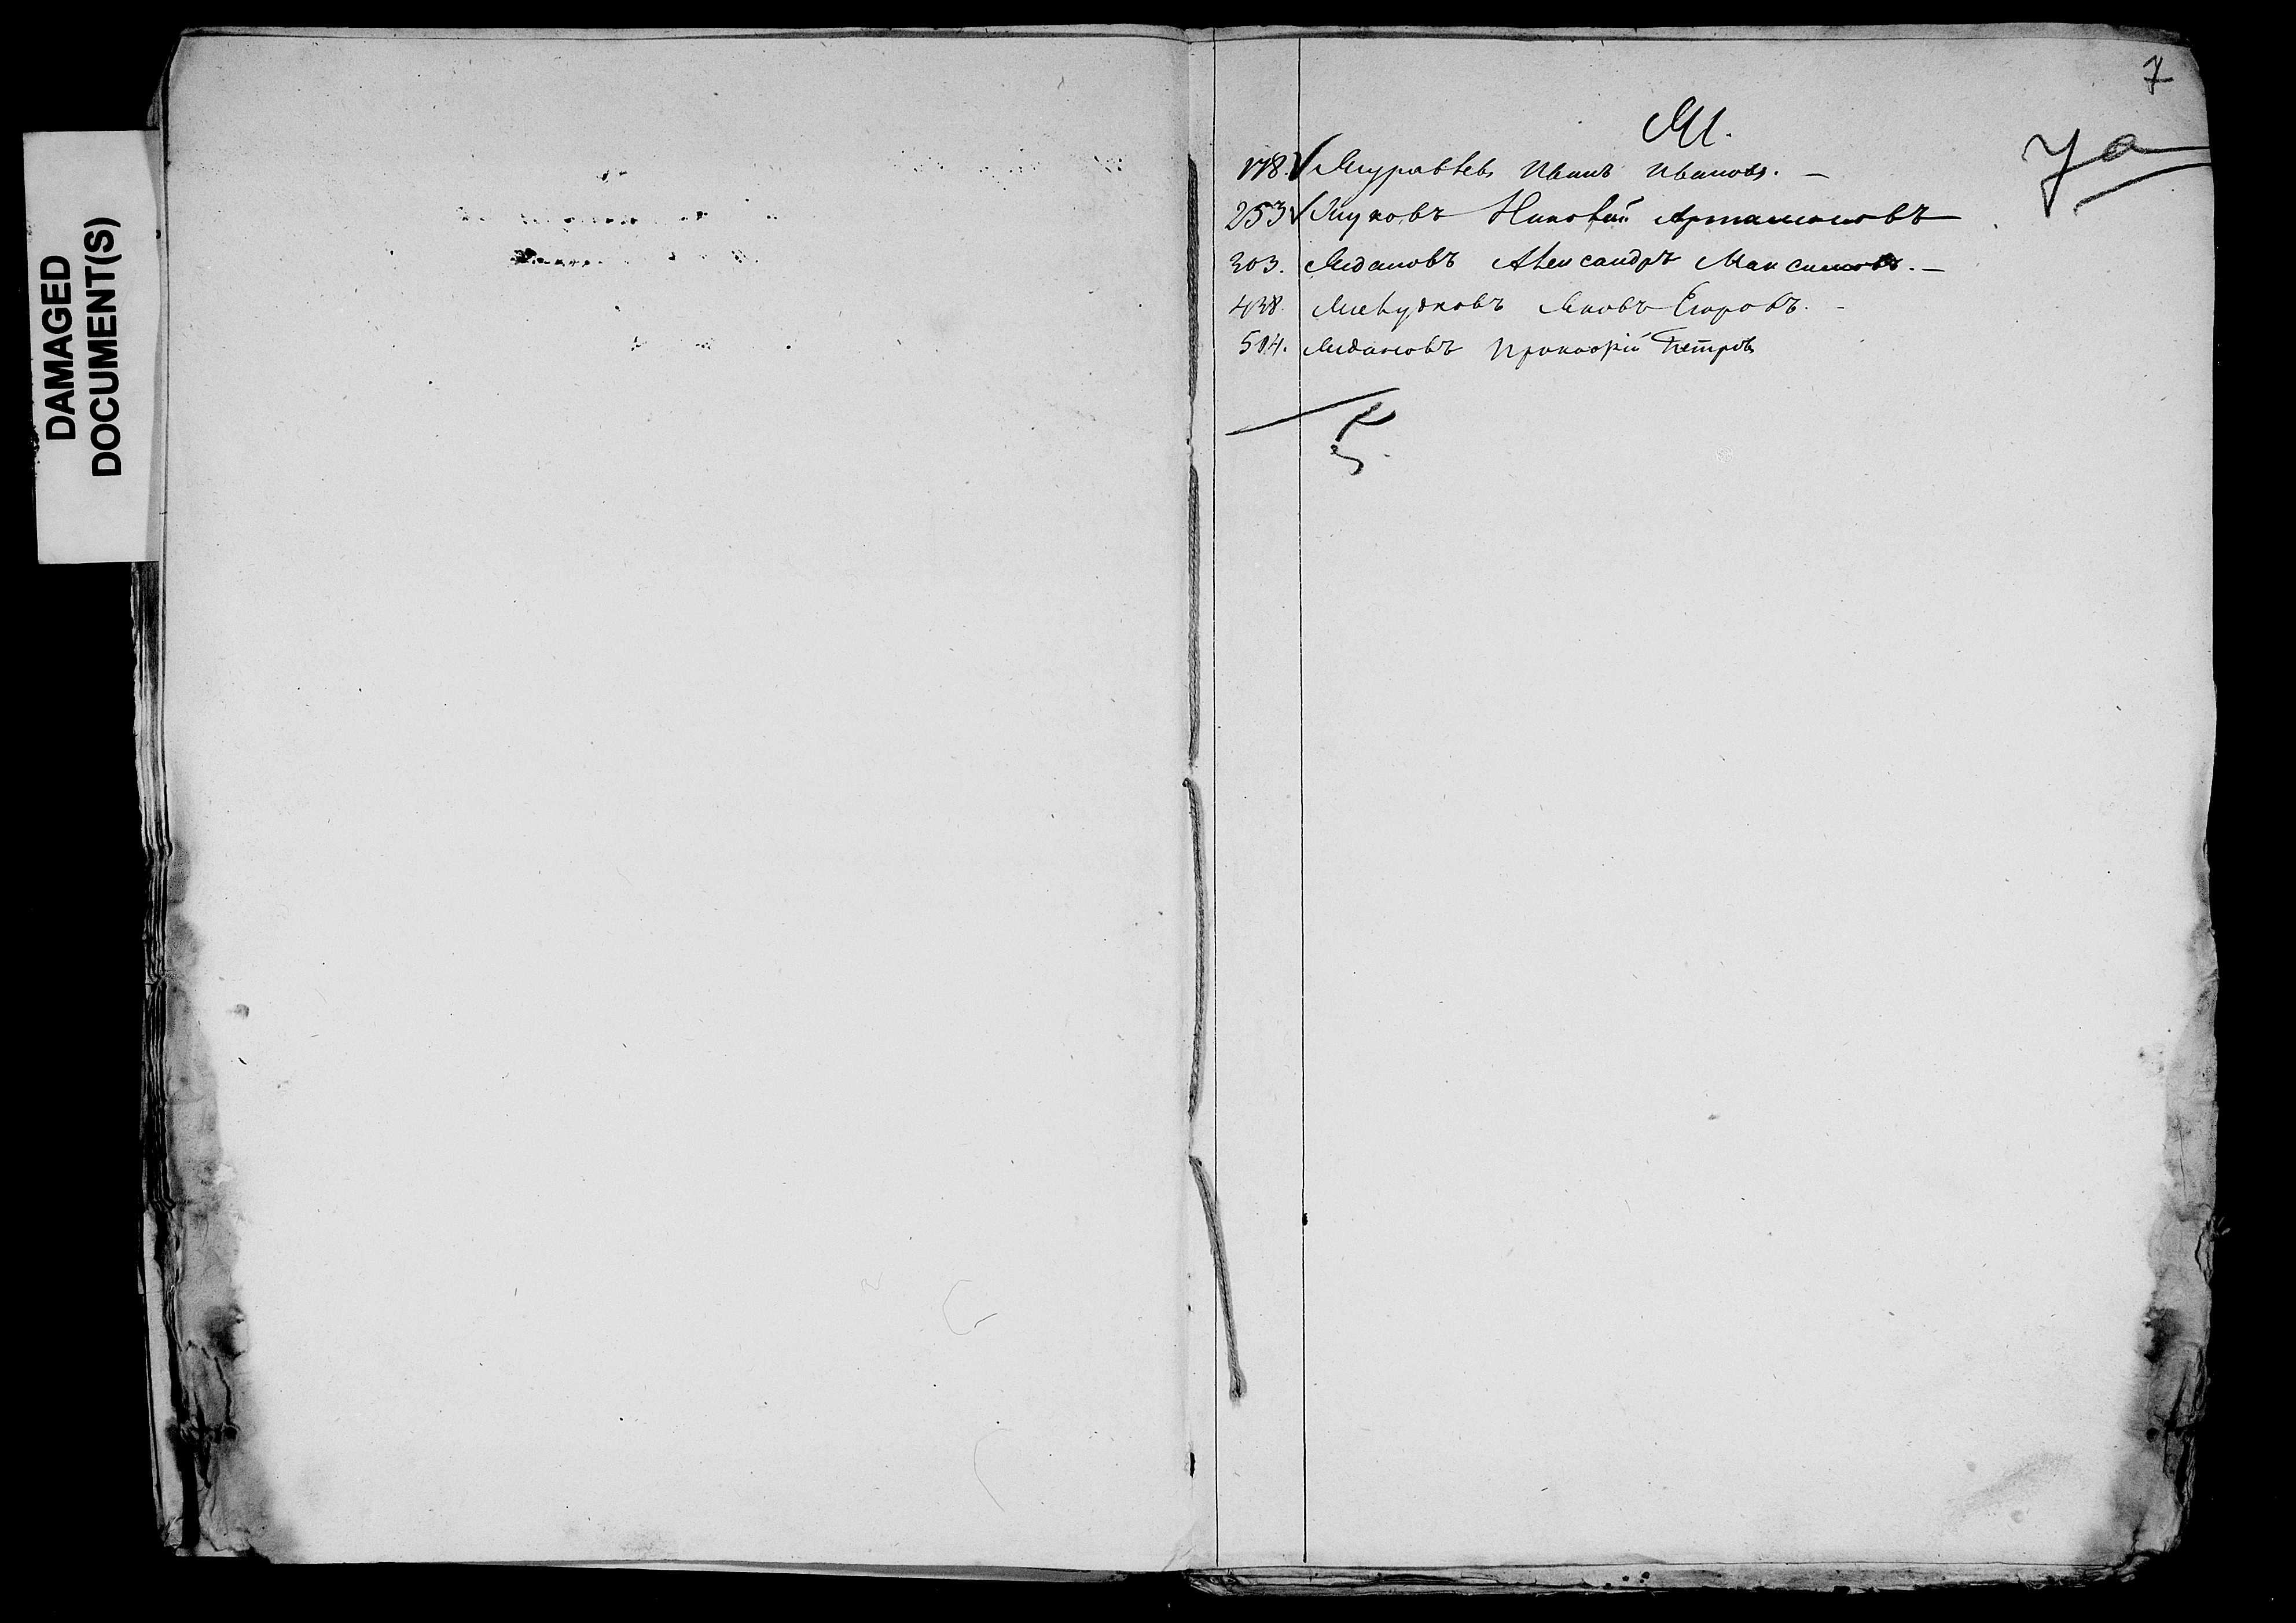 DAMAGED
DOCUMENT(S)
7
М.
7а
178. Муравьевъ Иванъ Ивановъ. —
253 Жуковъ Николай Артамоновъ
303. Ждановъ Александръ Максимовъ. —
438. Яковъ Егоровъ. -
514. Ждановъ Прокофій Петровъ